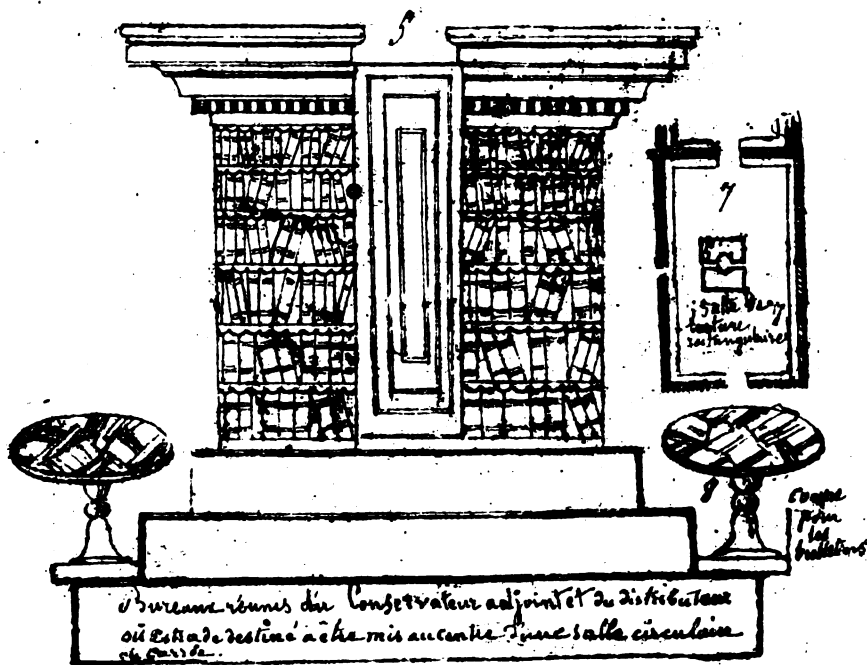 5
7
Salle de
lecture
rectangulaire
8
Coupe
pour
les
bulletins
Bureaux réunis du Conservateur adjoint et du distributeur
ou Estrade destiné a être mis au centre d'une salle circulaire
ou carrée.